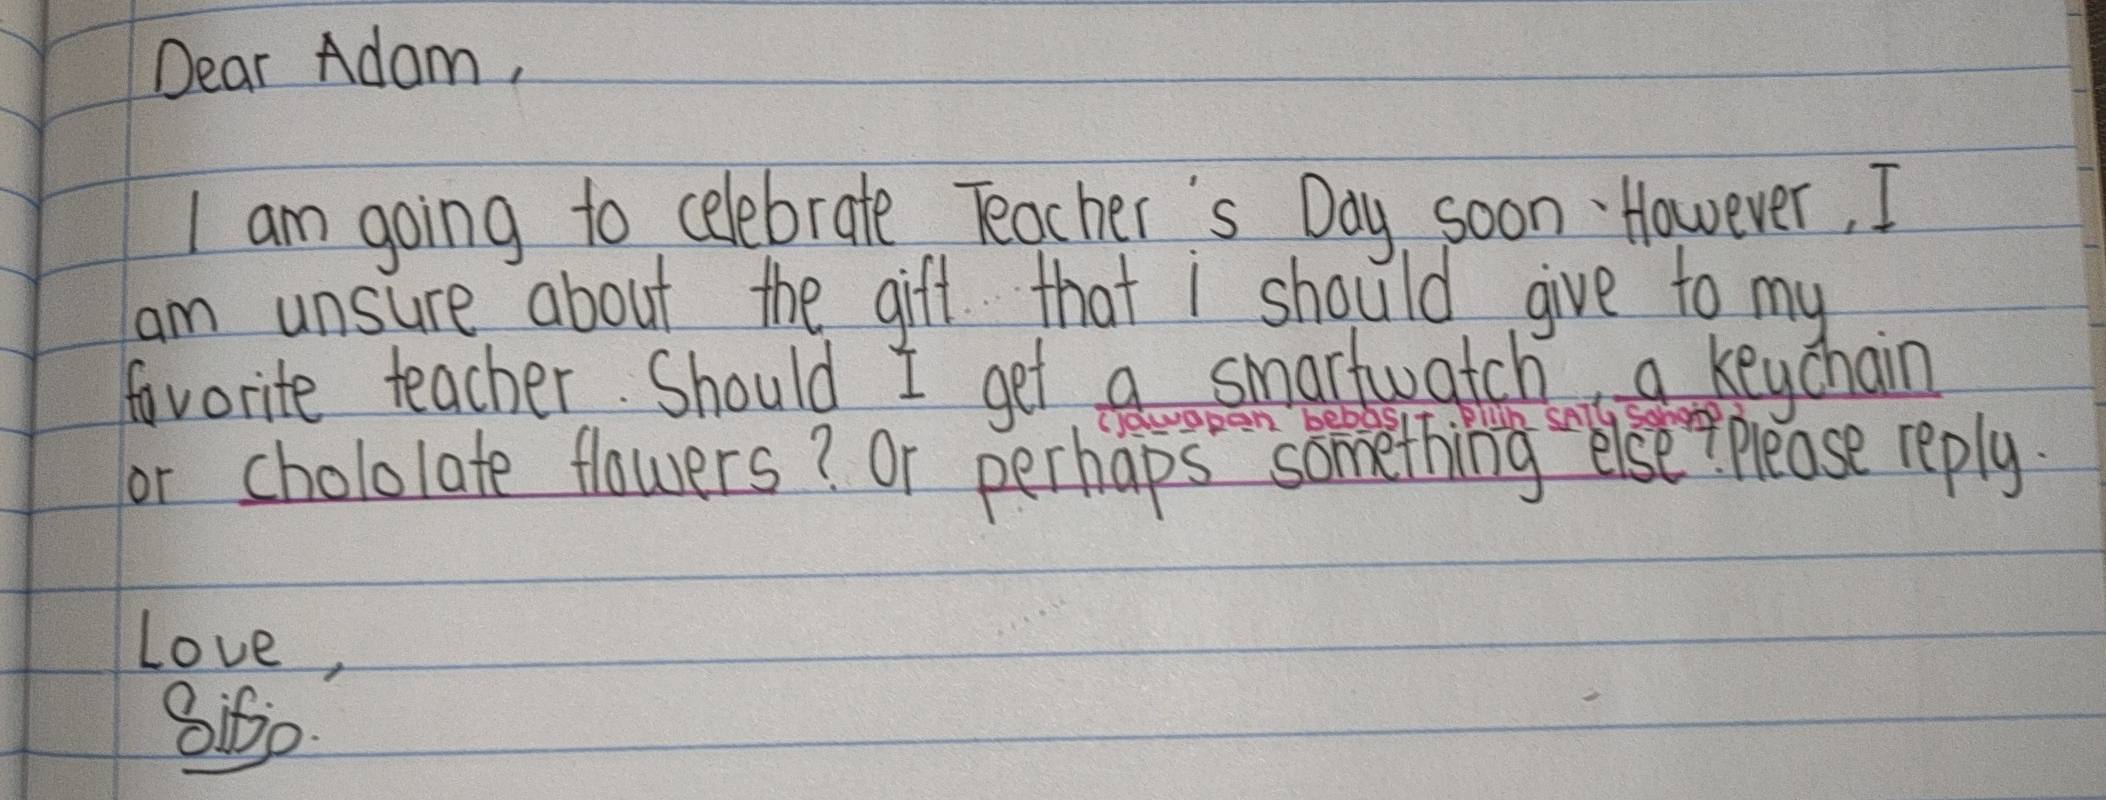 Dear Adam,
I am going to celebrate Teacher's Day soon. However, I
am unsure about the gift that i should give to my
favorite teacher. Should I get a smartwatch, a keychain
(Jawapan bebas, pilih SATU sahaja)
or chololate flowers? Or perhaps something else? Please reply.
Love,